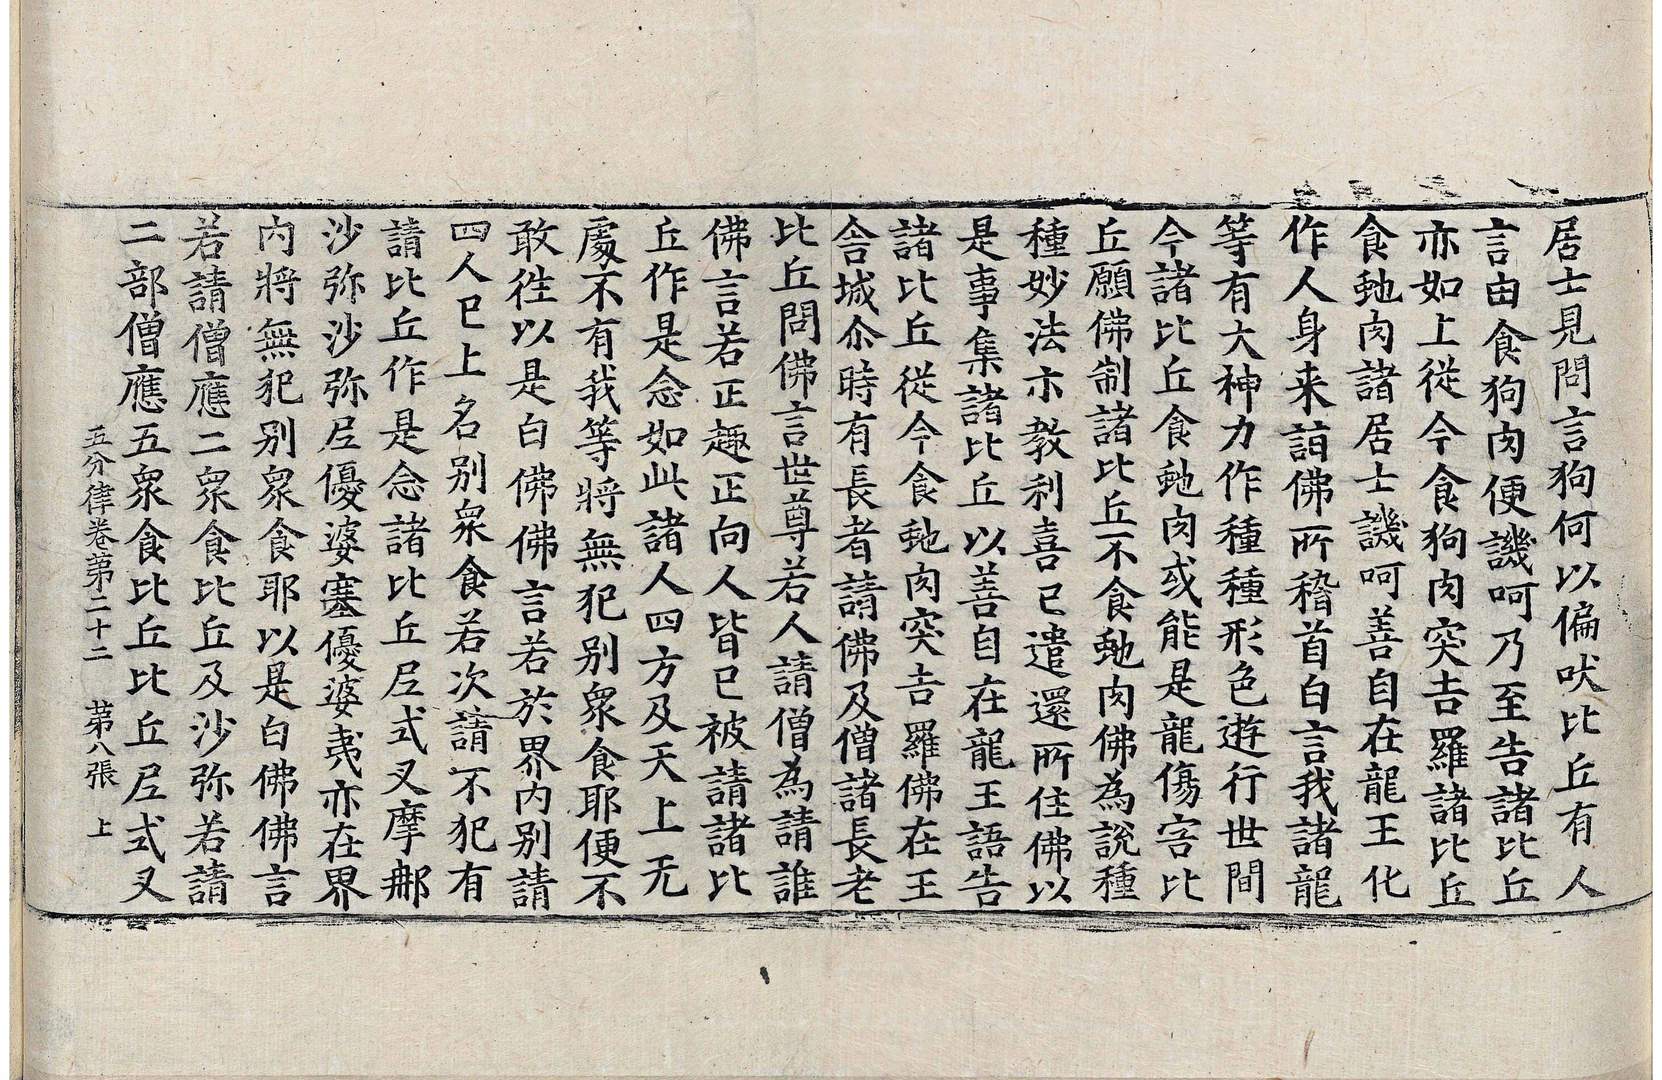 居士見問言狗何以偏吠比丘有人
言由食狗肉便譏呵乃至告諸比丘
亦如上從今食狗肉突吉羅諸比丘
食虵肉諸居士譏呵善自在龍王化
作人身来詣佛所稽首白言我諸龍
等有大神力作種種形色遊行世間
今諸比丘食虵肉或能是龍傷害比
丘願佛制諸比丘不食虵肉佛為說種
種妙法示教利喜已遣還所住佛以
是事集諸比丘以善自在龍王語告
諸比丘從今食虵肉突吉羅佛在王
舍城尒時有長者請佛及僧諸長老
比丘問佛言世尊若人請僧為請誰
佛言若正趣正向人皆已被請諸比
丘作是念如此諸人四方及天上无
處不有我等將無犯别衆食耶便不
敢徃以是白佛佛言若於界内别請
四人已上名别衆食若次請不犯有
請比丘作是念諸比丘尼式叉摩那
沙弥沙弥尼優婆塞優婆夷亦在界
内將無犯别衆食耶以是白佛佛言
若請僧應二衆食比丘及沙弥若請
二部僧應五衆食比丘比丘尼式叉
五分律卷第二十二 第八張 上